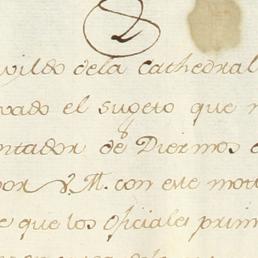 2
vildo dela Cathedral
vado el sugeto que
ntador de Diezmos
por V.M. con este mot
e que los oficiales prim